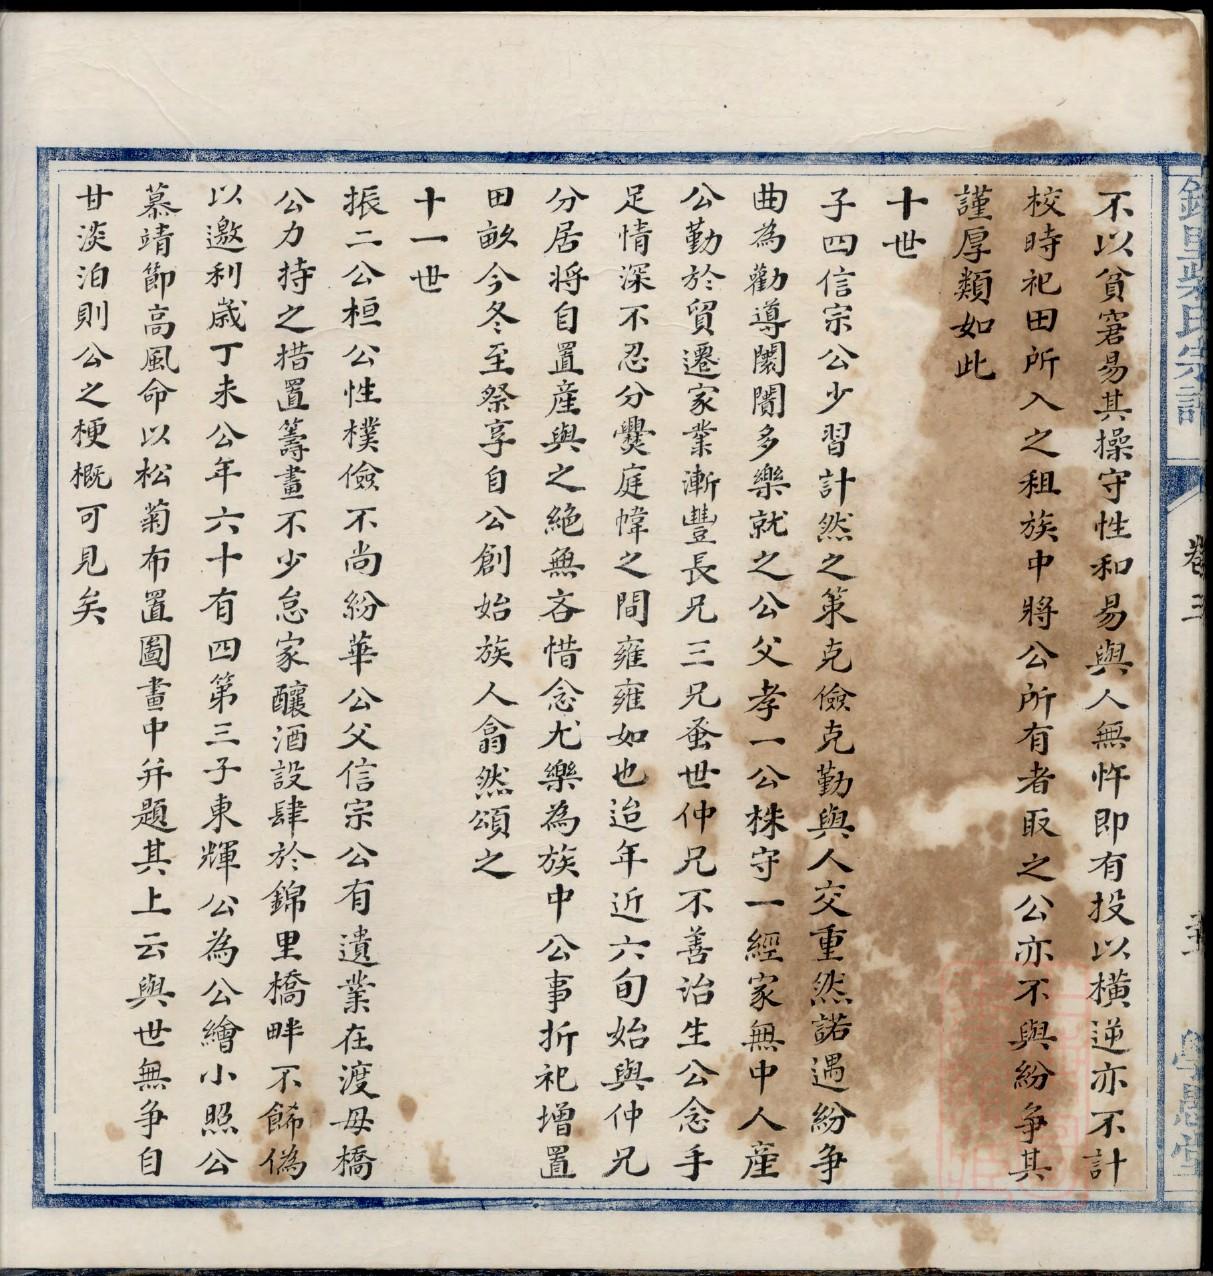 不以貧窘易其操守性和易與人無忤即有投以橫逆亦不計
校時祀田所入之租族中將公所有者取之公亦不與紛争其
謹厚類如此
十世
子四信宗公少習計然之策克儉克勤與人交重然諾遇紛争
曲為勸導闤闠多樂就之公父孝一公株守一經家無中人産
公勤於貿遷家業漸豐長兄三兄蚤世仲兄不善治生公念手
足情深不忍分爨庭幃之間雍雍如也迨年近六旬始與仲兄
分居将自置産與之絶無吝惜念尤樂為族中公事折祀增置
田畝今冬至祭享自公創始族人翕然頌之
十一世
振二公桓公性樸儉不尚紛華公父信宗公有遺業在渡母橋
公力持之措置籌畫不少怠家釀酒設肆於錦里橋畔不餙偽
以邀利歲丁未公年六十有四第三子東輝公為公繪小照公
慕靖節高風命以松菊布置圖畫中并題其上云與世無争自
甘淡泊則公之梗概可見矣
氏宗譜
卷三
學愚堂